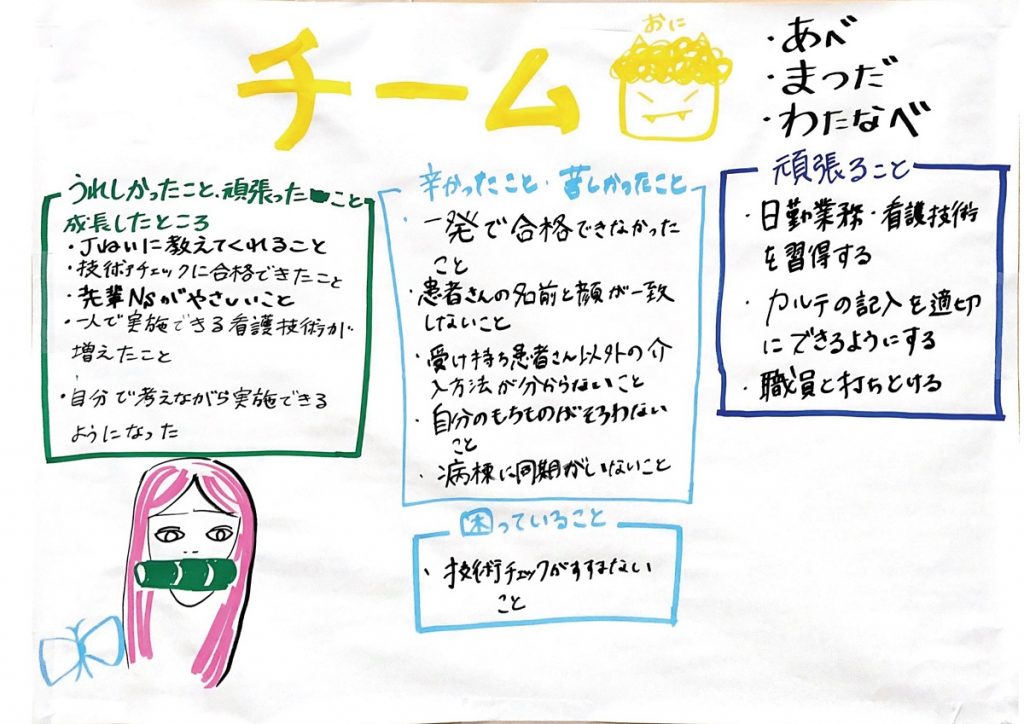 チーム
おに
・あべ
・まつだ
・わたなべ
うれしかったこと、頑張ったこと
成長したところ
・ていねいに教えてくれること
・技術チェックに合格できたこと
・先輩Nsがやさしいこと
・一人で実施できる看護技術が
増えたこと
・自分で考えながら実施できる
ようになった
辛かったこと・苦しかったこと
・一発で合格できなかった
こと
・患者さんの名前と顔が一致
しないこと
・受け持ち患者さん以外の介
入方法が分からないこと
・自分のもちものがそろわない
こと
・病棟に同期がいないこと
困っていること
・技術チェックがすすまない
こと
頑張ること
・日勤業務・看護技術
を習得する
・カルテの記入を適切
にできるようにする
・職員と打ちとける